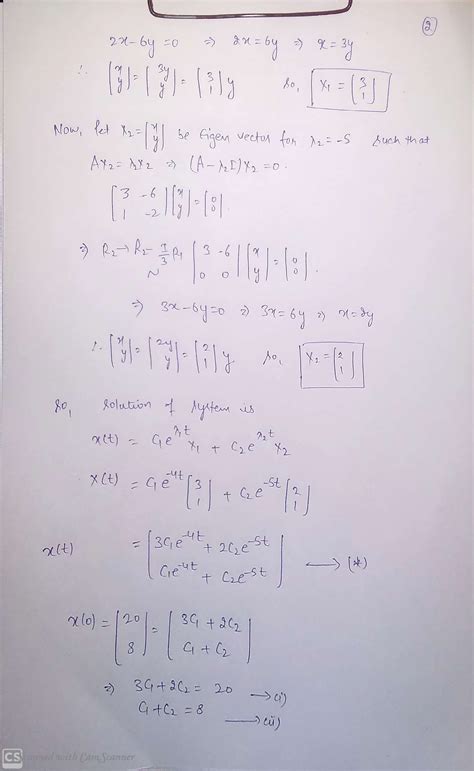 (2)
2x-6y=0 ⇒ 2x=6y ⇒ x=3y
∴ [x y] = [3y y] = [3 1] y so, X₁ = [3 1]
Now, let X₂ = [x y] be Eigen vector for λ₂=-5 such that
AX₂ = λX₂ ⇒ (A-λ₂I)X₂=0.
[3 -6 1 -2] [x y] = [0 0]
⇒ R₂→R₂-1/3 R₁ ~ [3 -6 0 0] [x y] = [0 0].
⇒ 3x-6y=0 ⇒ 3x=6y ⇒ x=2y
∴ [x y] = [2y y] = [2 1] y so, X₂ = [2 1]
So, solution of system is
x(t) = C₁e^λ₁t X₁ + C₂e^λ₂t X₂
X(t) = C₁e^-4t [3 1] + C₂e^-5t [2 1]
x(t) = [3C₁e^-4t + 2C₂e^-5t C₁e^-4t + C₂e^-5t] → (*)
x(0) = [20 8] = [3C₁+2C₂ C₁+C₂]
⇒ 3C₁+2C₂ = 20 → (i)
C₁+C₂ = 8 → (ii)
CS Scanned with CamScanner